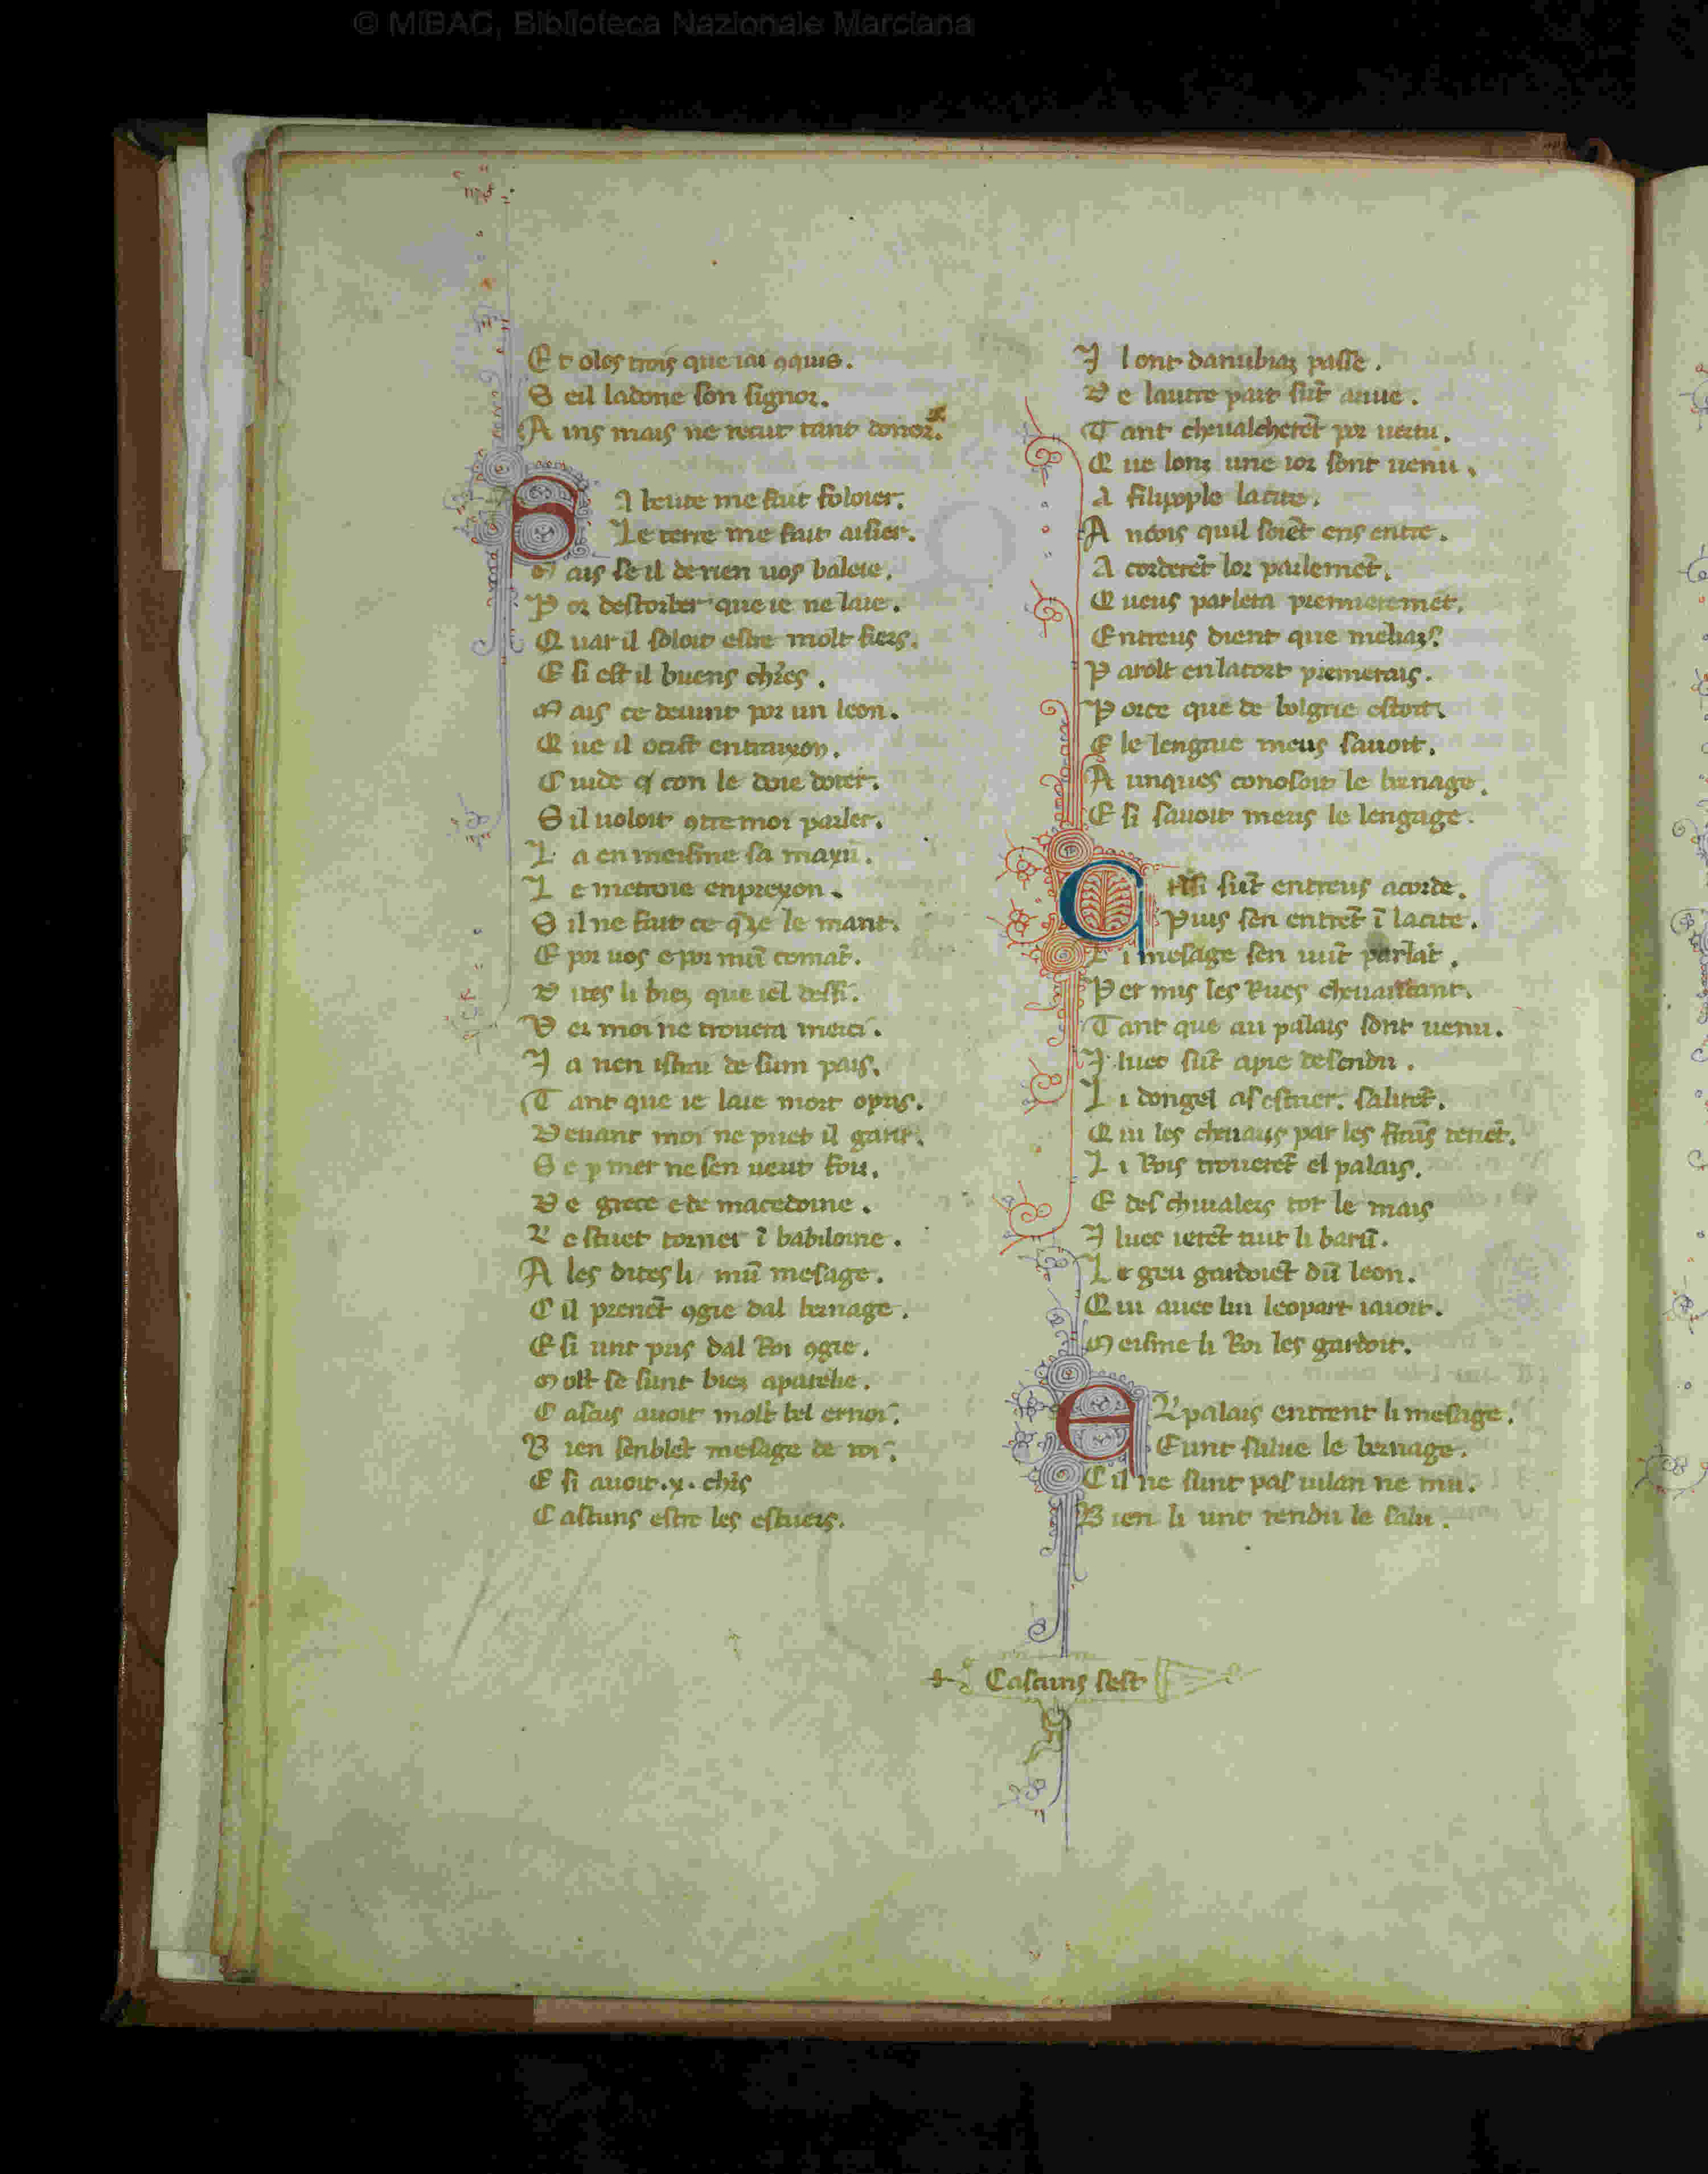 © MiBAC, Biblioteca Nazionale Marciana
Et oles trois que iai ꝯquis.
Seil ladone son signor.
Ains mais ne recut tant donor.
Sa leute me faut foloier.
Le terre me fait aisier.
Mais se il de rien uos baleie.
Por destorber que ie ne laie.
Quar il soloit estre molt fiers.
E si est il buens chrēs.
Mais ce deuint por un leon.
Que il ocist entraixon.
Cuide qͥ con le doie doter.
Sil uoloit ꝯtre moi parler.
La en meisme sa maxū.
Le metroie enprexon.
Sil ne fait ce qͥe le mant.
E por uos e por mūi comāt.
Dites li biez que iel desfi.
Der moi ne trouera merci.
Ia nen istra de sum pais.
Tant que ie laie mort o pris.
Deuant moi ne puet il garir.
Se ꝑ mer ne sen ueut foir.
De grece e de macedoine.
Lestuet torner ī babiloine.
Ales dites li mū mesage.
Cil prenēt ꝯgie dal bernage.
E si unt pris dal Roi ꝯgie.
Molt se sunt biez apareilie.
Cascus auoit molt bel ernoi.
Bien senblēt mesage de roi.
E si auoit .x. chrs
Cascuns estre les escuers.
Il ont danubiaz passe.
De lautre part sūt ariue.
Tant cheualcherēt por uertu.
Que lonz une ior sont uenu.
A filippople la cite.
Ancois quil soiēt ens entre.
Acorderēt lor parlemēt.
Queus parlera premieremēt.
Entreus dient que meliaz
Parolt en la cort premerais.
Porce que de bolgrie estoit.
E le lengaue meus sauoit.
Aunques conosoit le bernage.
E si sauoit meus le lengage.
Quāt si sūt entreus acorde.
Puis sen entrēt ī la cite.
Li mesage sen uūt parlāt.
Per mis les Rues cheuauant.
Tant que au palais sont uenu.
Iluec sūt a pie desendu.
Li dongel as estrier salirēt.
Qui les cheuaus par les frāis tenēt.
Li Rois trouerēt el palais.
E des chiualers tot le mais
Iluec ierēt tuit li barū.
Le greu gardoiēt dū leon.
Qui auec lui leopart iauoit.
Meisme li Roi les gardoit.
El palais entrent li mesage.
E unt salue le bernage.
Cil ne sunt pas uilan ne mu.
Bien li unt rendu le salu.
Cascuns sest